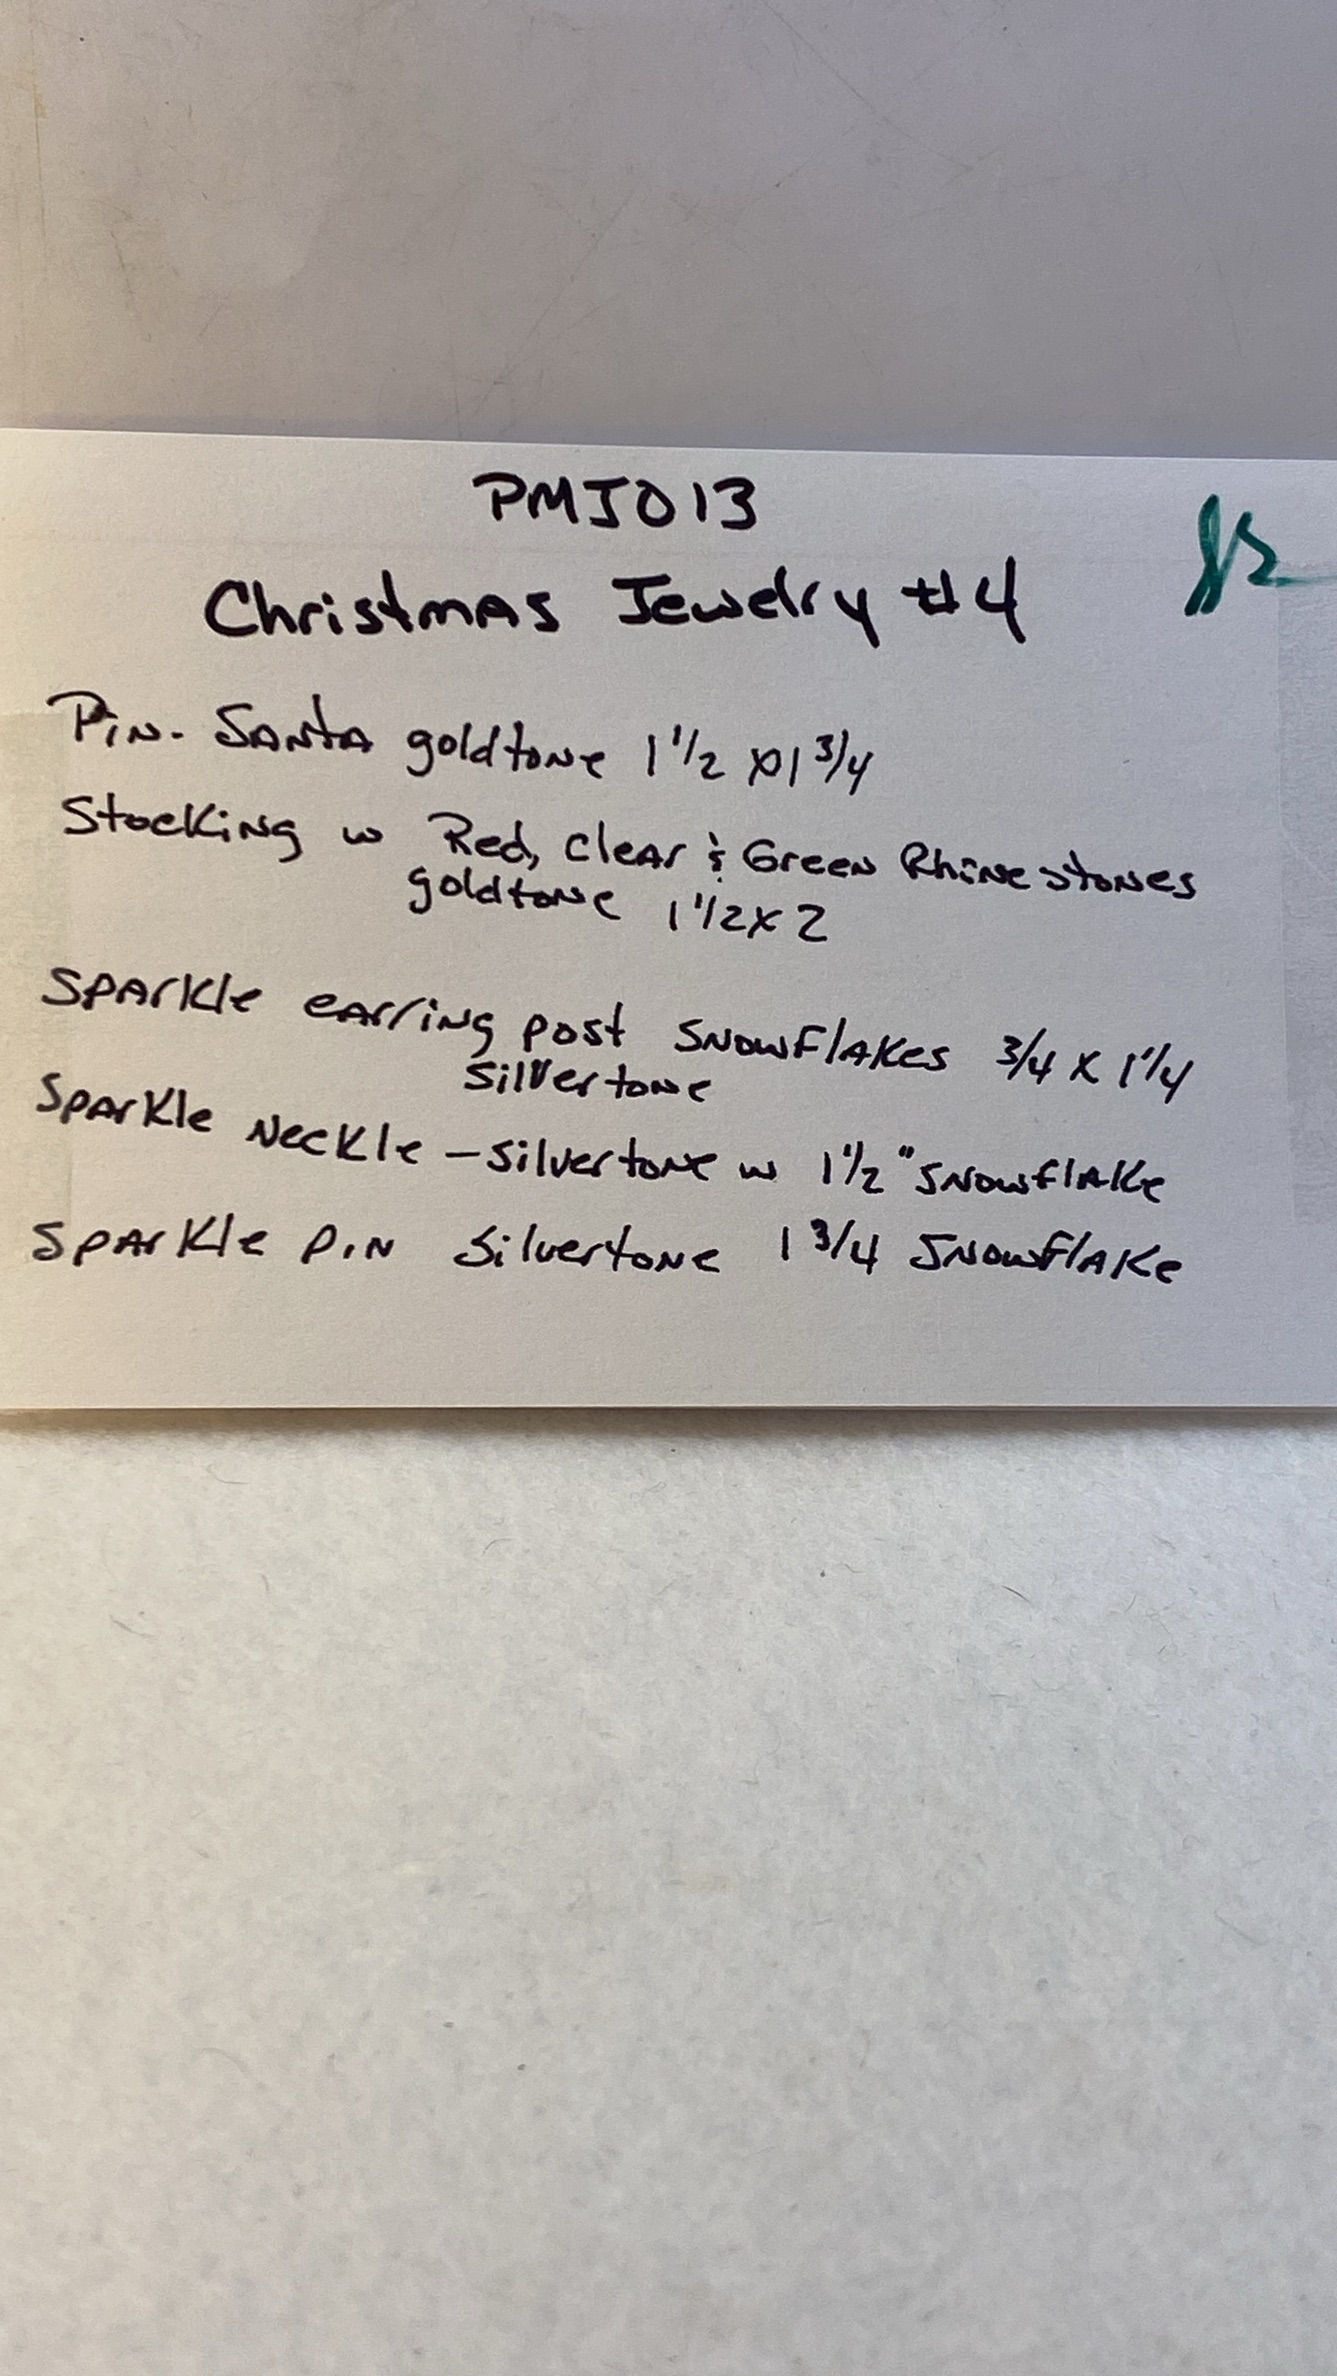 PMJ013
Christmas Jewelry #4
Pin. Santa goldtone 1 1/2 x 1 3/4
Stocking w Red, Clear & Green Rhinestones
goldtone 1 1/2 x 2
Sparkle earring post snowflakes 3/4 x 1 1/4
silvertone
Sparkle Neckle - silvertone w 1 1/2" snowflake
Sparkle pin silvertone 1 3/4 snowflake